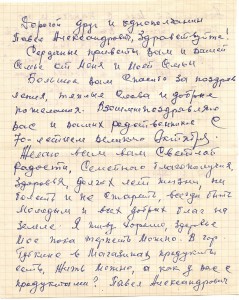 Дорогой друг и однополчанин
Павел Александрович, здравствуйте!
Сердечные приветы Вам и Вашей
семье от меня и моей семьи
Большое вам спасибо за поздрав
ления, теплые слова и добрые
пожелания. Взаимно поздравляю
вас и ваших родственников с
70-летием Великого Октября.
Желаю всем вам светлой
радости, семейного благополучия,
здоровья, долгих лет жизни, не
болеть и не стареть, всегда быть
молодым и всех добрых благ на
земле. Я живу хорошо, здоровье
мое пока терпеть можно. В гор
в магазинах продукты
есть, жить можно, а как у вас с
продуктами? Павел Александрович